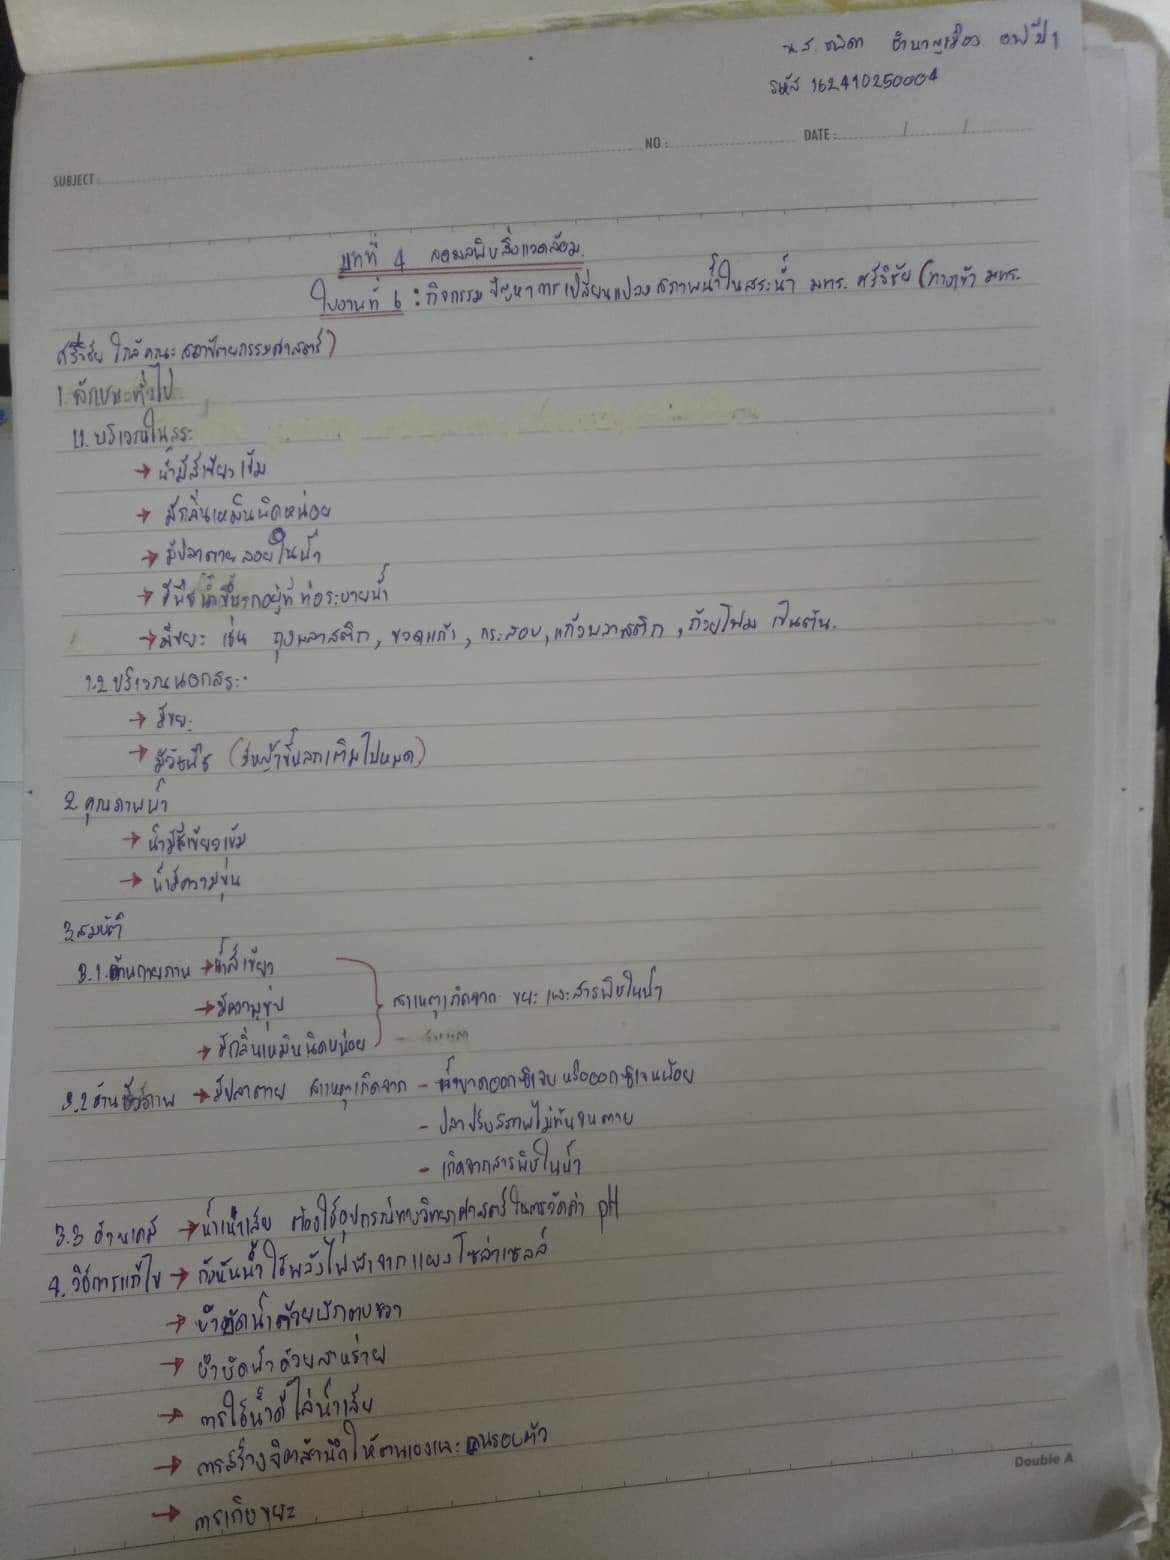 น.ส. ชนิดา ชำนาญเมือง อพ ปี 1
รหัส 162410250004
NO : DATE : / /
SUBJECT :
บทที่ 4 ลดมลพิษสิ่งแวดล้อม
ใบงานที่ 6 : กิจกรรม ปัญหาการเปลี่ยนแปลงสภาพน้ำในสระน้ำ มทร. ศรีวิชัย (ทางเข้า มทร.
ศรีวิชัย ใกล้คณะสถาปัตยกรรมศาสตร์)
1. ลักษณะทั่วไป
1.1. บริเวณในสระ
→ น้ำมีสีเขียวเข้ม
→ มีกลิ่นเหม็นนิดหน่อย
→ มีปลาตายลอยในน้ำ
→ มีพืชน้ำขึ้นรกอยู่ที่ท่อระบายน้ำ
→ มีขยะ เช่น ถุงพลาสติก, ขวดแก้ว, กระสอบ, แก้วพลาสติก, ถ้วยโฟม เป็นต้น
1.2 บริเวณนอกสระ
→ มีขยะ
→ มีวัชพืช (มีหญ้าขึ้นรกเต็มไปหมด)
2. คุณภาพน้ำ
→ น้ำมีสีเขียวเข้ม
→ น้ำมีความขุ่น
3. สมบัติ
3.1. ด้านกายภาพ → น้ำสีเขียว
→ มีความขุ่น
สาเหตุเกิดจาก ขยะ และสารพิษในน้ำ
→ มีกลิ่นเหม็นนิดหน่อย
3.2 ด้านชีวภาพ → มีปลาตาย สาเหตุเกิดจาก - น้ำขาดออกซิเจน หรือออกซิเจนน้อย
- ปลาปรับสภาพไม่ทันจนตาย
- เกิดจากสารพิษในน้ำ
3.3 ด้านเคมี → น้ำเน่าเสีย ต้องใช้อุปกรณ์ทางวิทยาศาสตร์ในการวัดค่า pH
4. วิธีการแก้ไข → กังหันน้ำใช้พลังไฟฟ้าจากแผงโซล่าเซลล์
→ บำบัดน้ำด้วยผักตบชวา
→ บำบัดน้ำด้วยสาหร่าย
→ การใช้น้ำดีไล่น้ำเสีย
→ การสร้างจิตสำนึกให้ตนเองและคนรอบตัว
→ การเก็บขยะ
Double A